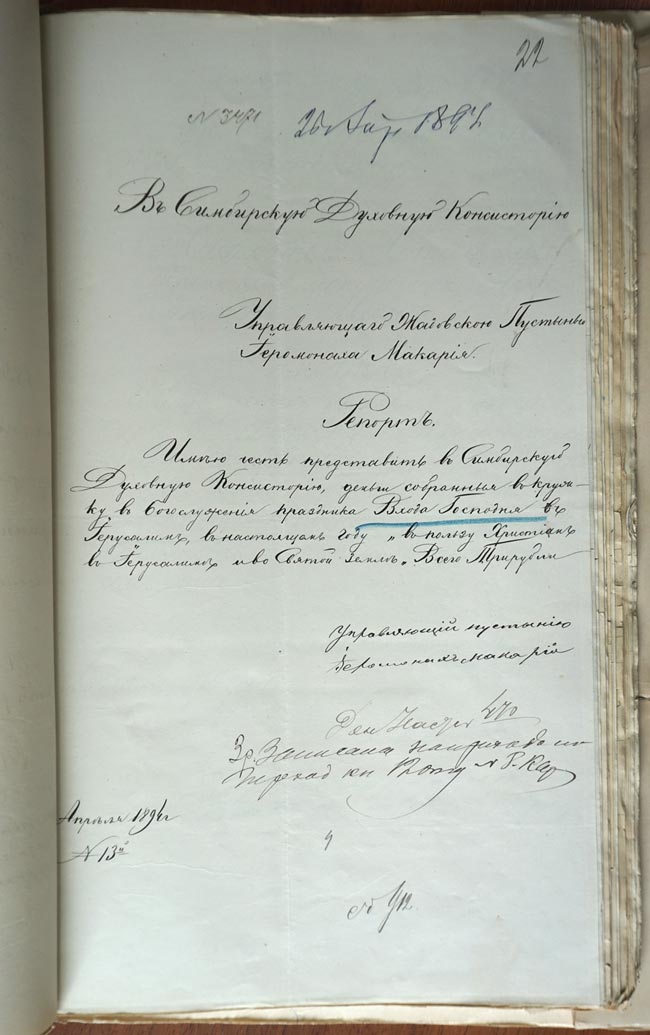 22
N 3471
26 Апр 1894
Въ Симбирскую Духовную Консисторію
Управляющаго Жадовскою Пустынью
Іеромонаха Макарія.
Репортъ.
Имѣю честь представить въ Симбирскую
Духовную Консисторію, деньги собранныя въ круж-
ку, въ богослуженія праздника Входа Господня въ
Іерусалимъ, въ настоящемъ году „въ пользу Христіанъ
въ Іерусалимѣ и во Святой Землѣ„ Всего Три рубли
Управляющій пустынію
Іеромонахъ Макарій
3 р. Записана на приходъ по
Апрѣля 1894 г
N 13